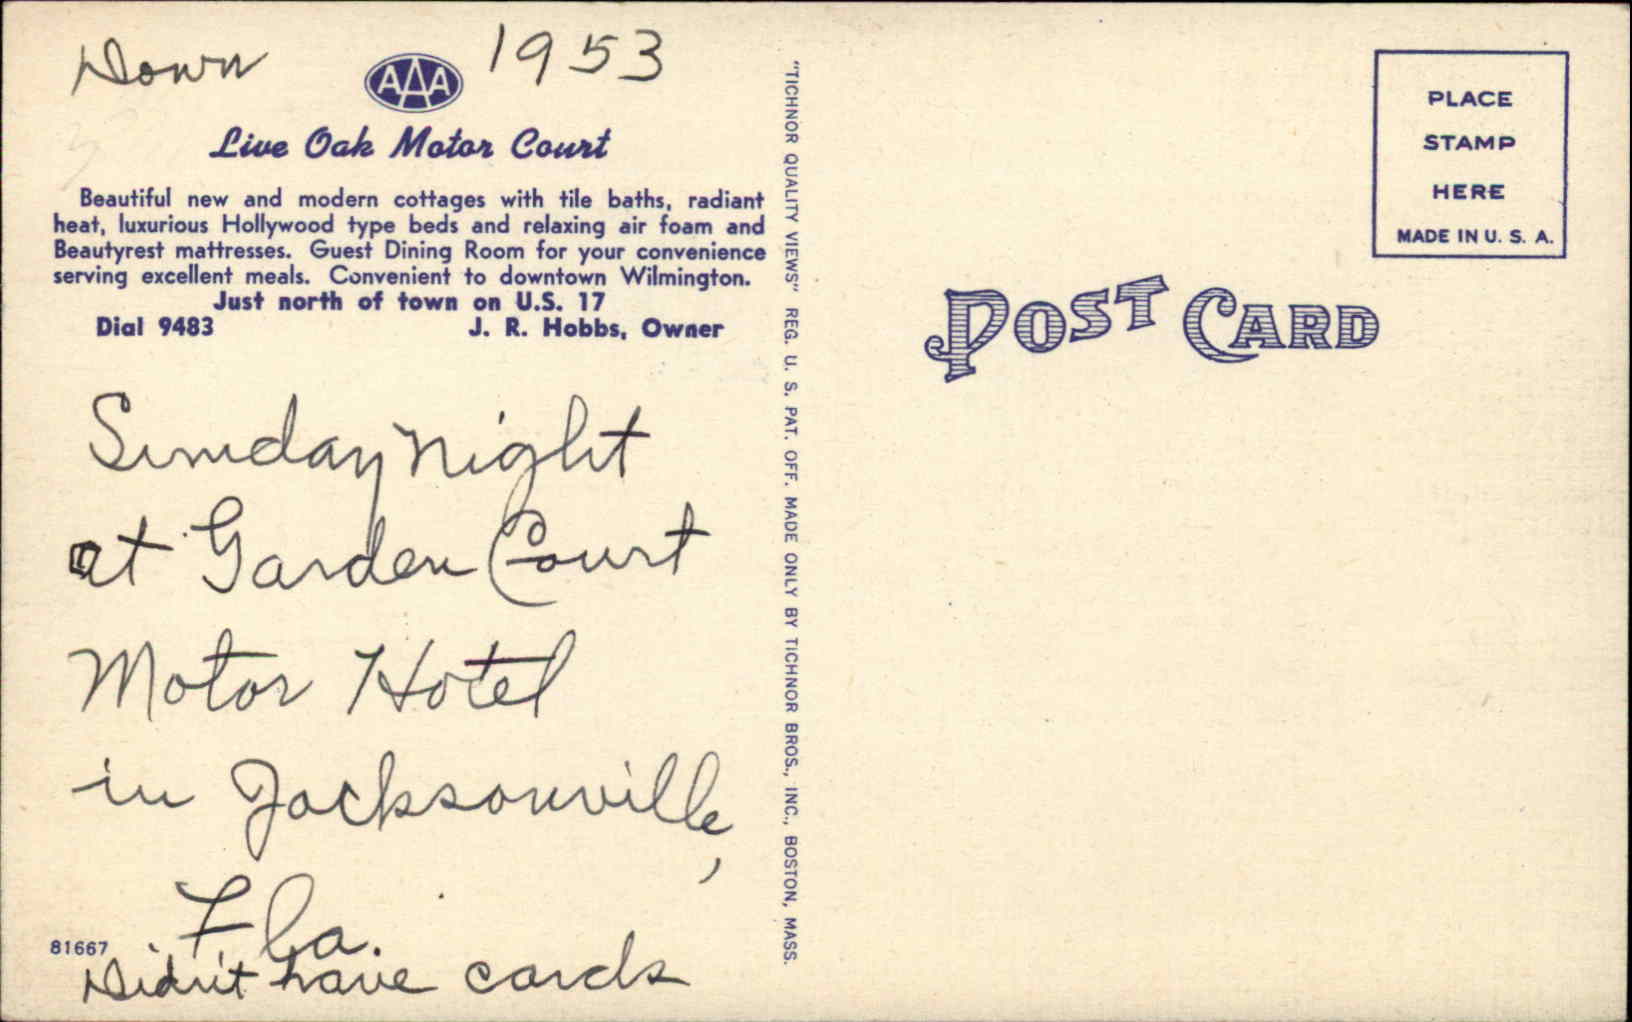 Down
1953
AAA
Live Oak Motor Court
Beautiful new and modern cottages with tile baths, radiant
heat, luxurious Hollywood type beds and relaxing air foam and
Beautyrest mattresses. Guest Dining Room for your convenience
serving excellent meals. Convenient to downtown Wilmington.
Just north of town on U.S. 17
Dial 9483 J. R. Hobbs, Owner
Sunday night
at Garden Court
Motor Hotel
in Jacksonville,
Fla.
Didn't have cards
81667
"TICHNOR QUALITY VIEWS" REG. U. S. PAT. OFF. MADE ONLY BY TICHNOR BROS., INC., BOSTON, MASS.
POST CARD
PLACE
STAMP
HERE
MADE IN U. S. A.